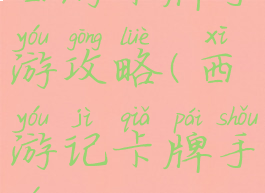 yóu gōng lüè xī
游攻略(西
yóu jì qiǎ pái shǒu
游记卡牌手